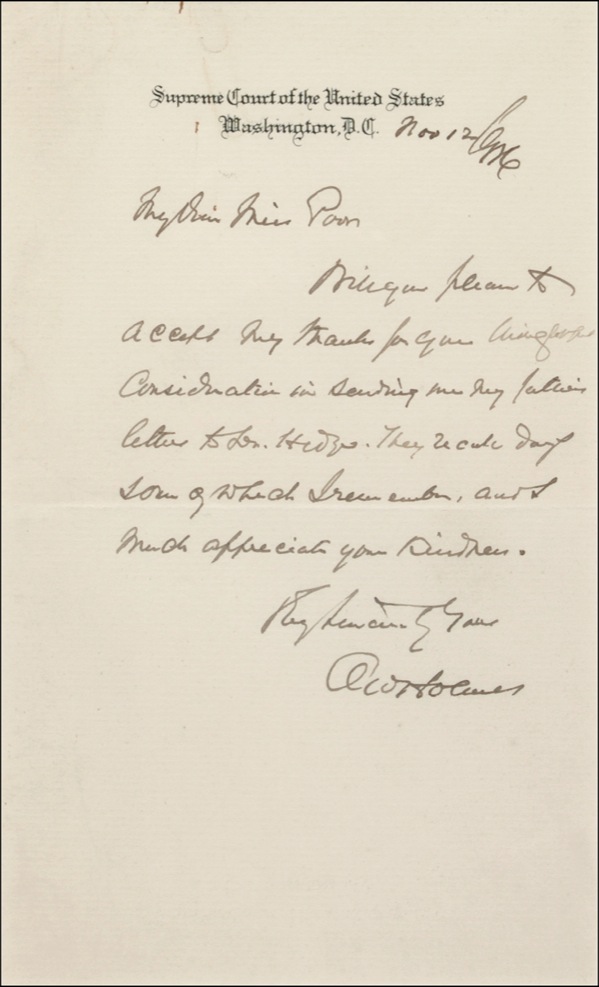 Supreme Court of the United States
Washington, D.C. Nov 12
My Dear Miss Poor
Will you please to
accept my thanks for your
consideration in sending me my father's
letters to Dr. Hedge. They recall days
some of which I remember, and I
much appreciate your kindness.
Very sincerely yours
O W Holmes